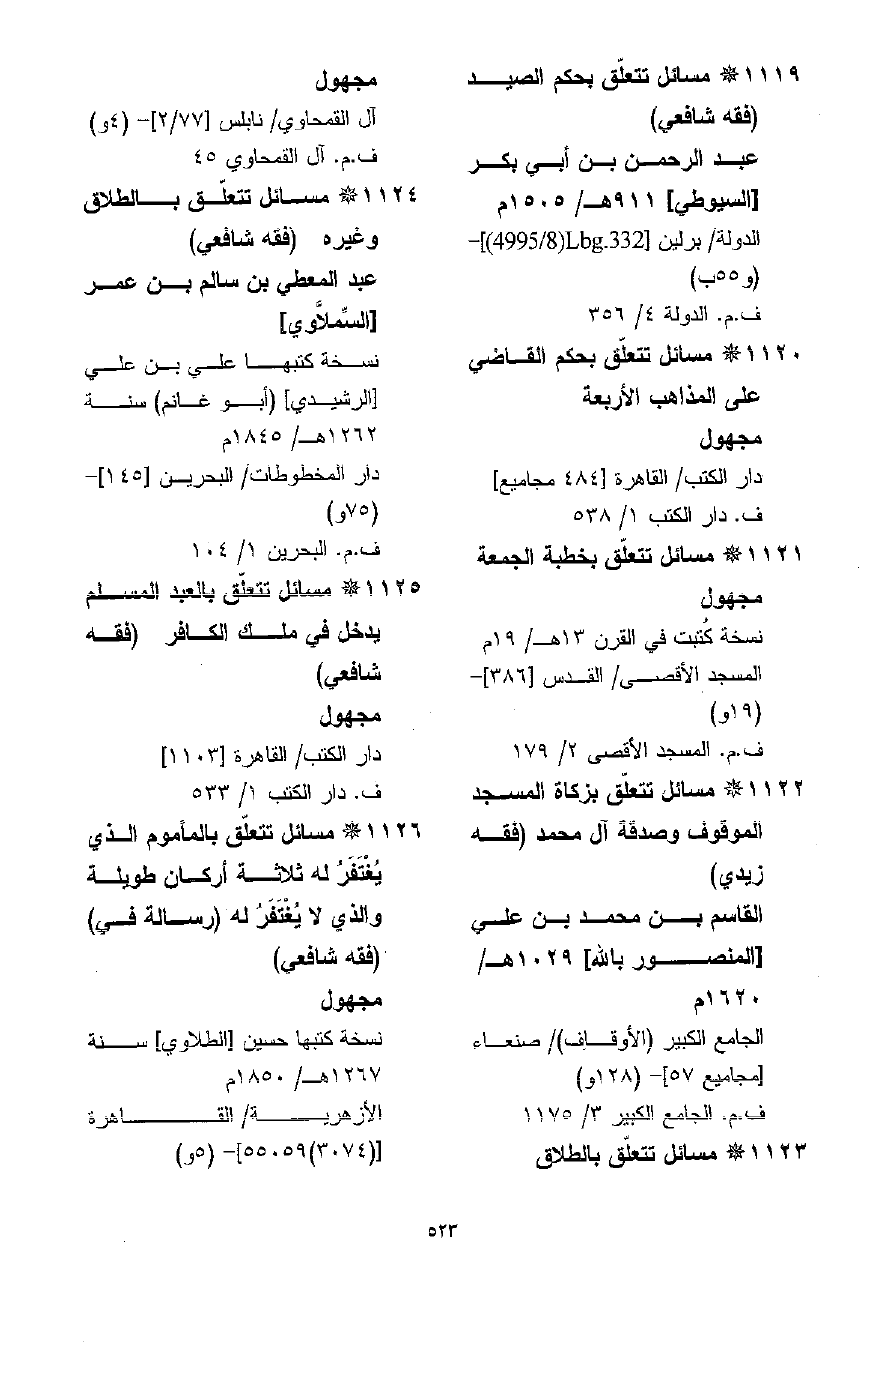 ١١١٩ * مسائل تتعلّق بحكم الصيد
(فقه شافعي)
عبد الرحمن بن أبي بكر
[السيوطي] ٩١١هـ/ ١٥٠٥م
الدولة/ برلين [Lbg.332(4995/8)]-
(و٥٥ب)
ف.م. الدولة ٤/ ٣٥٦
١١٢٠ * مسائل تتعلّق بحكم القاضي
على المذاهب الأربعة
مجهول
دار الكتب/ القاهرة [٤٨٤ مجاميع]
ف. دار الكتب ١/ ٥٣٨
١١٢١ * مسائل تتعلّق بخطبة الجمعة
مجهول
نسخة كُتبت في القرن ١٣هـ/ ١٩م
المسجد الأقصى/ القدس [٣٨٦]-
(١٩و)
ف.م. المسجد الأقصى ٢/ ١٧٩
١١٢٢ * مسائل تتعلّق بزكاة المسجد
الموقوف وصدقة آل محمد (فقه
زيدي)
القاسم بن محمد بن علي
[المنصور بالله] ١٠٢٩هـ/
١٦٢٠م
الجامع الكبير (الأوقاف)/ صنعاء
[مجاميع ٥٧]- (١٢٨و)
ف.م. الجامع الكبير ٣/ ١١٧٥
١١٢٣ * مسائل تتعلّق بالطلاق
مجهول
آل القمحاوي/ نابلس [٢/٧٧]- (٤و)
ف.م. آل القمحاوي ٤٥
١١٢٤ * مسائل تتعلّق بالطلاق
وغيره (فقه شافعي)
عبد المعطي بن سالم بن عمر
[السِّملاَّوي]
نسخة كتبها علي بن علي
[الرشيدي] (أبو غانم) سنة
١٢٦٢هـ/ ١٨٤٥م
دار المخطوطات/ البحرين [١٤٥]-
(٧٥و)
ف.م. البحرين ١/ ١٠٤
١١٢٥ * مسائل تتعلّق بالعبد المسلم
يدخل في ملك الكافر (فقه
شافعي)
مجهول
دار الكتب/ القاهرة [١١٠٣]
ف. دار الكتب ١/ ٥٣٣
١١٢٦ * مسائل تتعلّق بالمأموم الذي
يُغْتَفَرُ له ثلاثة أركان طويلة
والذي لا يُغْتَفَرُ له (رسالة في)
(فقه شافعي)
مجهول
نسخة كتبها حسين [الطلاوي] سنة
١٢٦٧هـ/ ١٨٥٠م
الأزهرية/ القاهرة
[(٣٠٧٤)٥٥٠٥٩]- (٥و)
٥٢٣